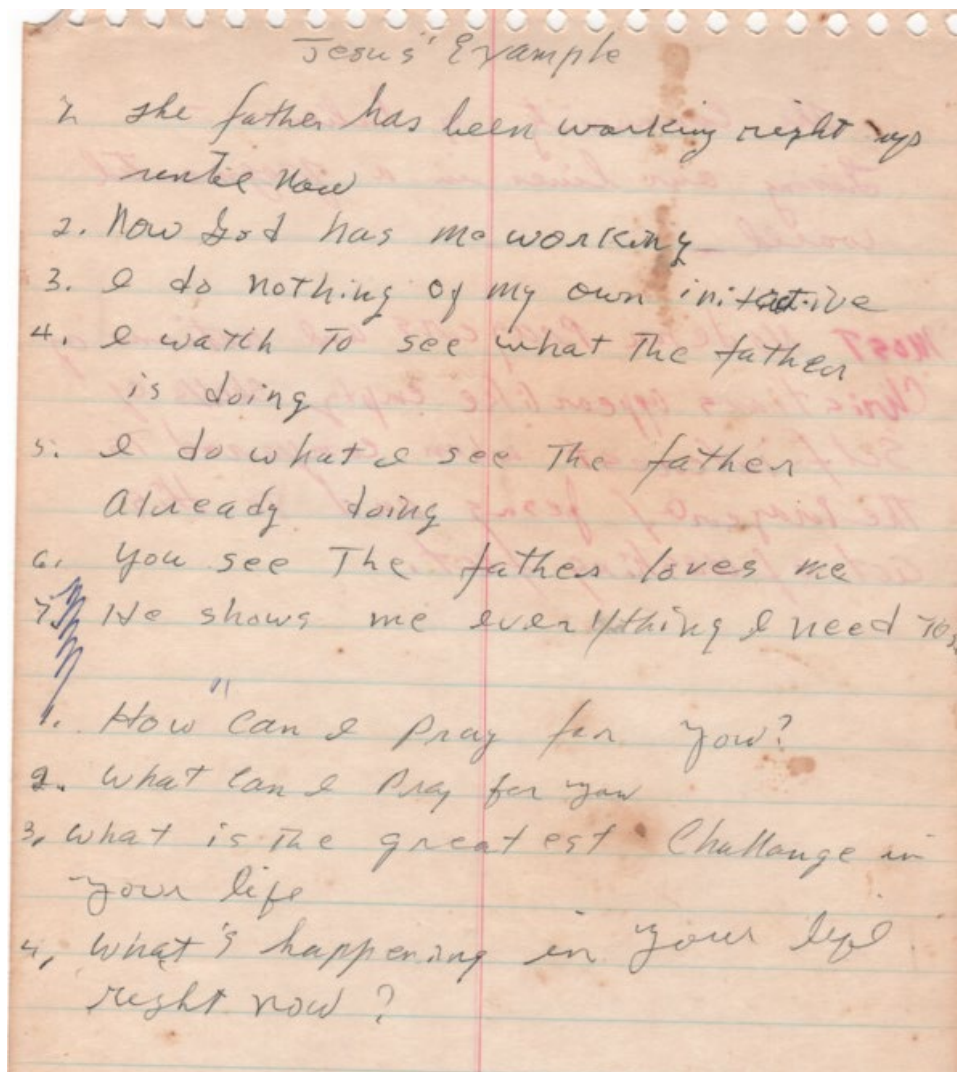 Jesus' Example
1. The father has been working right up
until now
2. Now God has me working
3. I do nothing of my own initative
4. I watch To see what The father
is doing
5. I do what I see The father
Already doing
6. You see The father loves me
7. He shows me everything I need To
1. How can I pray for you?
2. What can I pray for you
3. What is The greatest Challange in
your life
4. What's happening in your life
right now?